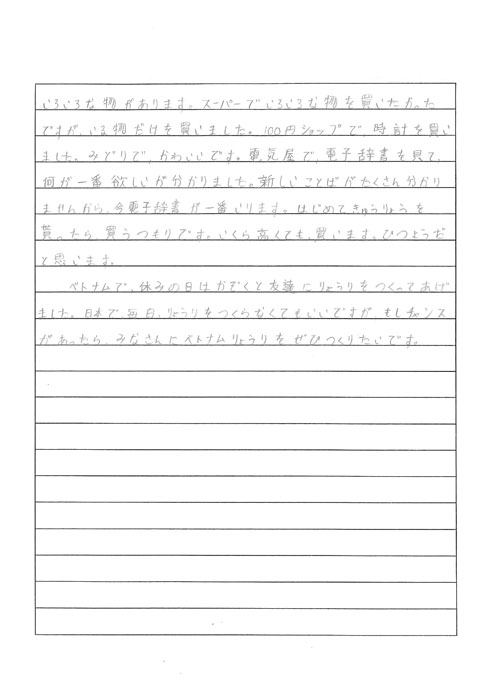 いろいろな物があります。スーパーでいろいろな物を買いたかった
ですが、いる物だけを買いました。100円ショップで、時計を買い
ました。みどりで、かわいいです。電気屋で、電子辞書を見て、
何が一番欲しいが分かりました。新しいことばがたくさん分かり
ませんから、今電子辞書が一番いります。はじめてきゅうりょうを
貰ったら、買うつもりです。いくら高くても、買います。ひつようだ
と思います。
ベトナムで、休みの日はかぞくと友達にりょうりをつくってあげ
ました。日本で、毎日、りょうりをつくらなくてもいいですが、もしチャンス
があったら、みなさんにベトナムりょうりをぜひつくりたいです。